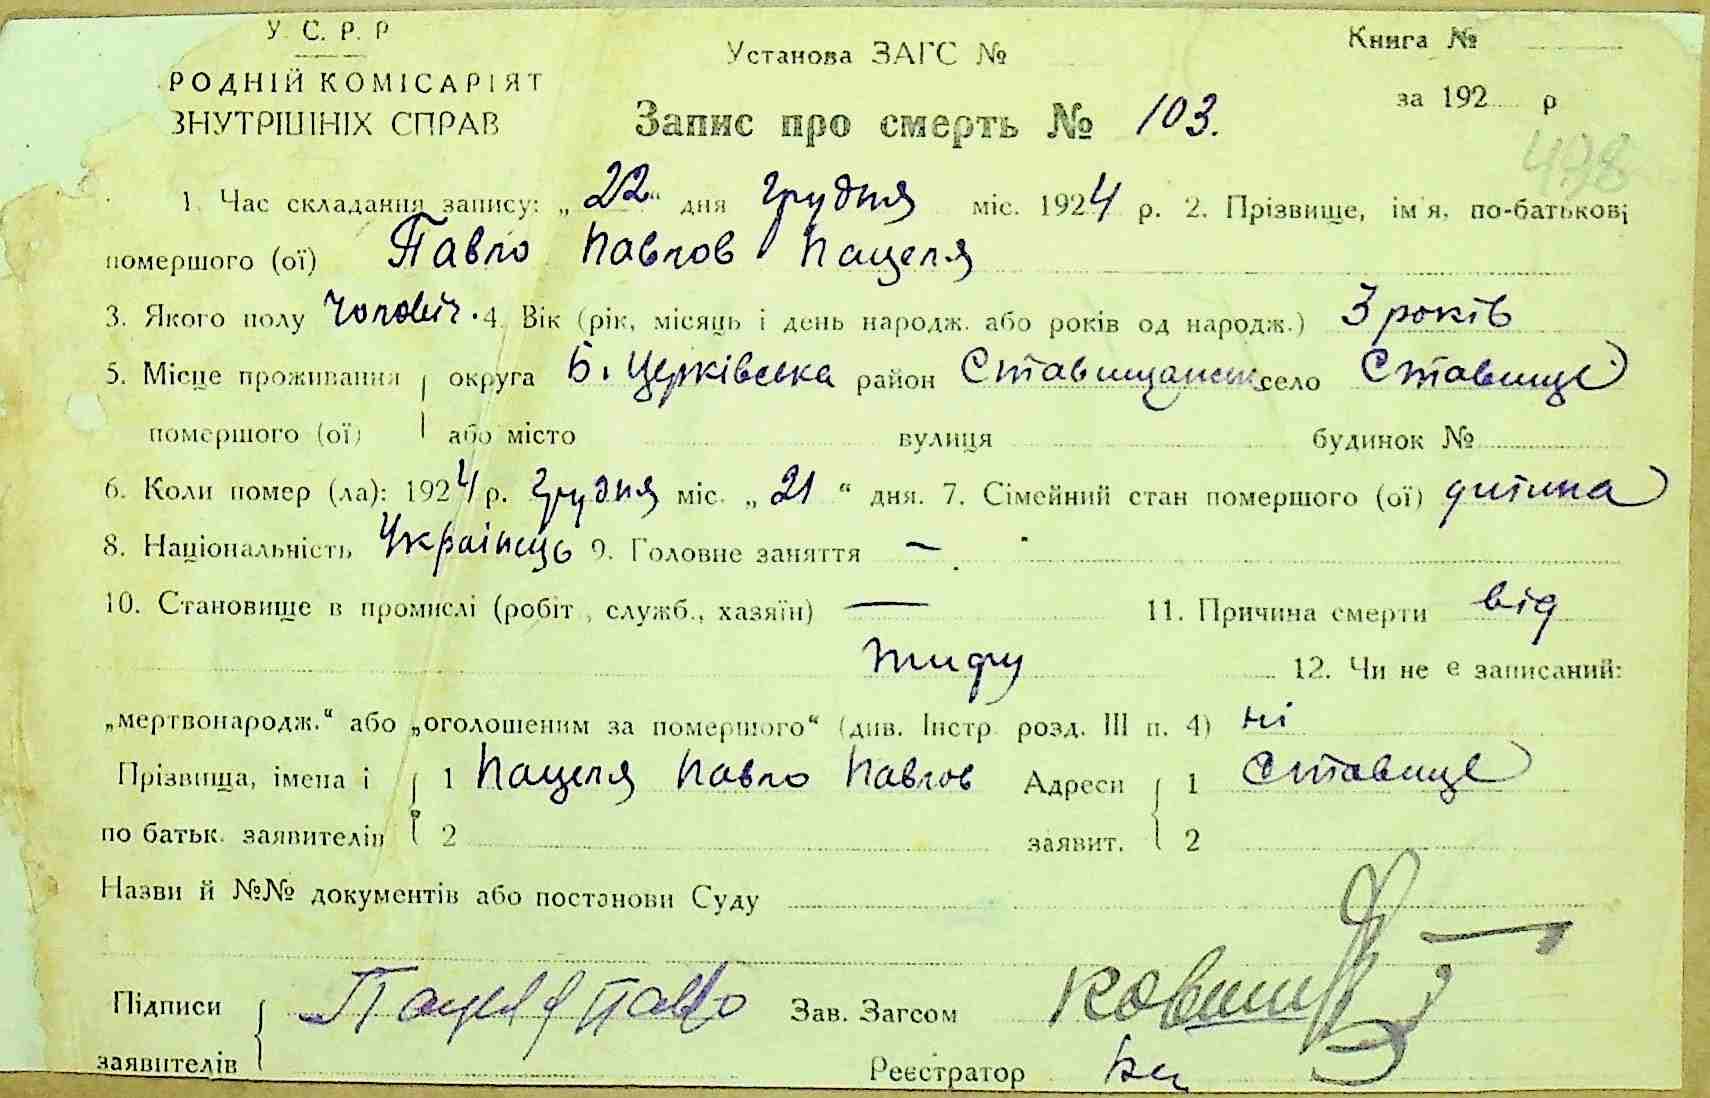 У. С. Р. Р
РОДНІЙ КОМІСАРІЯТ
ВНУТРІШНІХ СПРАВ
Установа ЗАГС №
Книга №
за 192 р
Запис про смерть № 103.
478
1. Час складання запису: „22“ дня грудня міс. 1924 р. 2. Прізвище, ім'я, по-батькові
помершого (ої) Павло Павлов Пацеля
3. Якого полу чоловіч. 4. Вік (рік, місяць і день народж. або років од народж.) 3 років
5. Місце проживання округа Б. Церківська район Ставищанськ село Ставище
помершого (ої) або місто вулиця будинок №
6. Коли помер (ла): 1924 р. грудня міс. „21“ дня. 7. Сімейний стан помершого (ої) дитина
8. Національність Українець 9. Головне заняття —
10. Становище в промислі (робіт., служб., хазяїн) — 11. Причина смерти від
тифу 12. Чи не є записаний:
„мертвонародж.“ або „оголошеним за помершого“ (див. Інстр. розд. III п. 4) ні
Прізвища, імена і 1 Пацеля Павло Павлов Адреси 1 Ставище
по батьк. заявителів 2 заявит. 2
Назви й №№ документів або постанови Суду
Підписи Пацеля Павло Зав. Загсом
заявителів Реєстратор